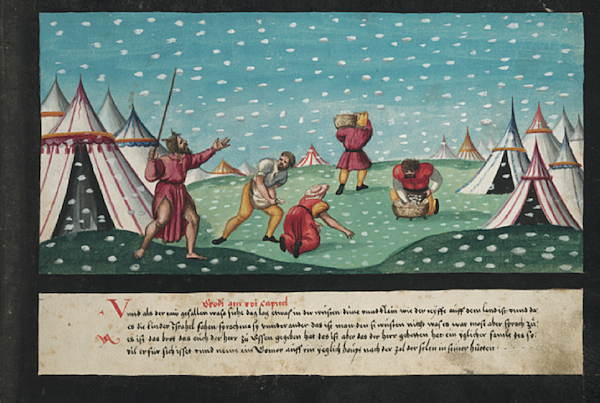 Exodi am xvi capitel
Unnd als der taw gefallen was sihe da lag etwas in der wüsten dünn unnd klain wie der reyffe auff dem land ist unnd da
es die kinder Israhel sahen sprachens sy under ander das ist man den si wissten nitt was es war mose aber sprach zů
es ist das brot das euch der herr zu Essen gegeben hat das ist aber das der herr gebotten hat ein yglicher samle des so
vil er für sich isset unnd neme ein Gomer auff ein yeglich haupt nach der zal der selen in seiner hütten